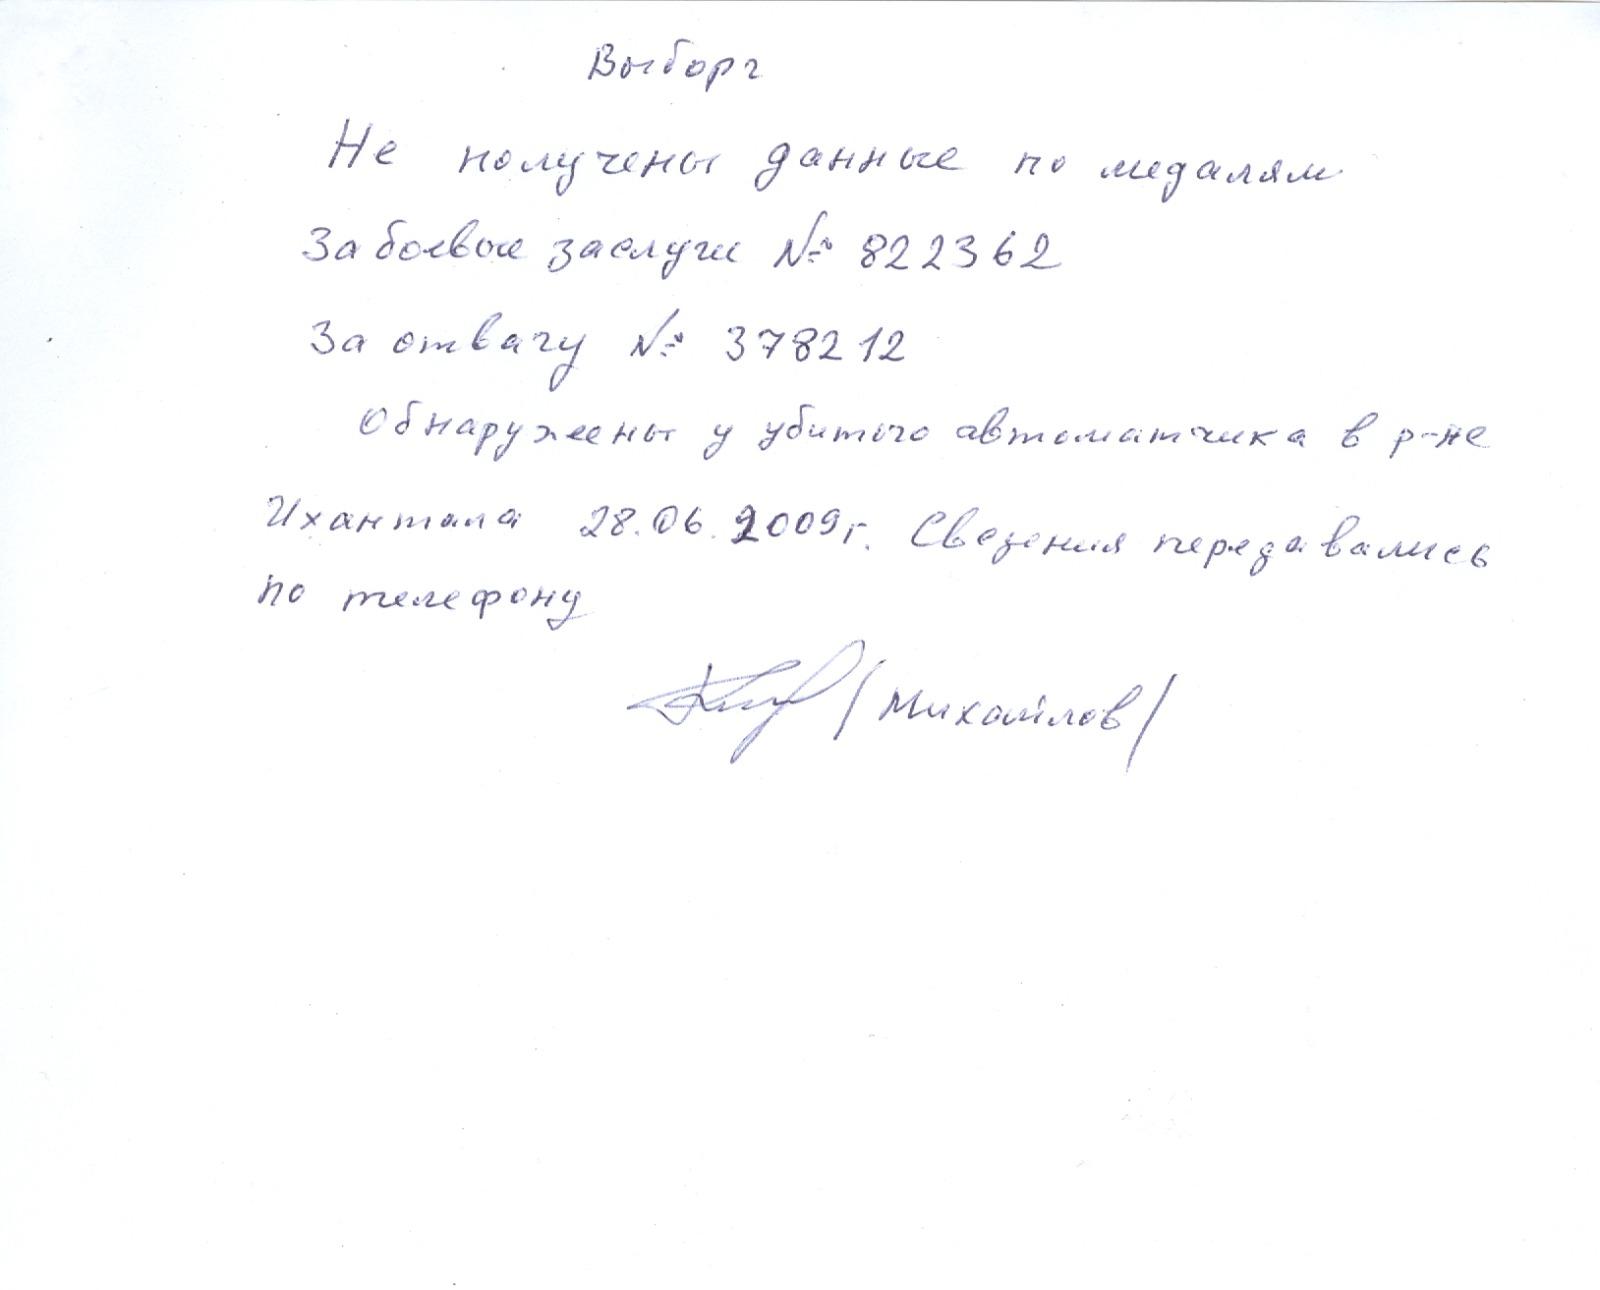 Выборг
Не получены данные по медалям
За боевые заслуги № 822362
За отвагу № 378212
Обнаружены у убитого автоматчика в р-не
Ихантала 28.06.2009г. Сведения передавались
по телефону
/Михайлов/